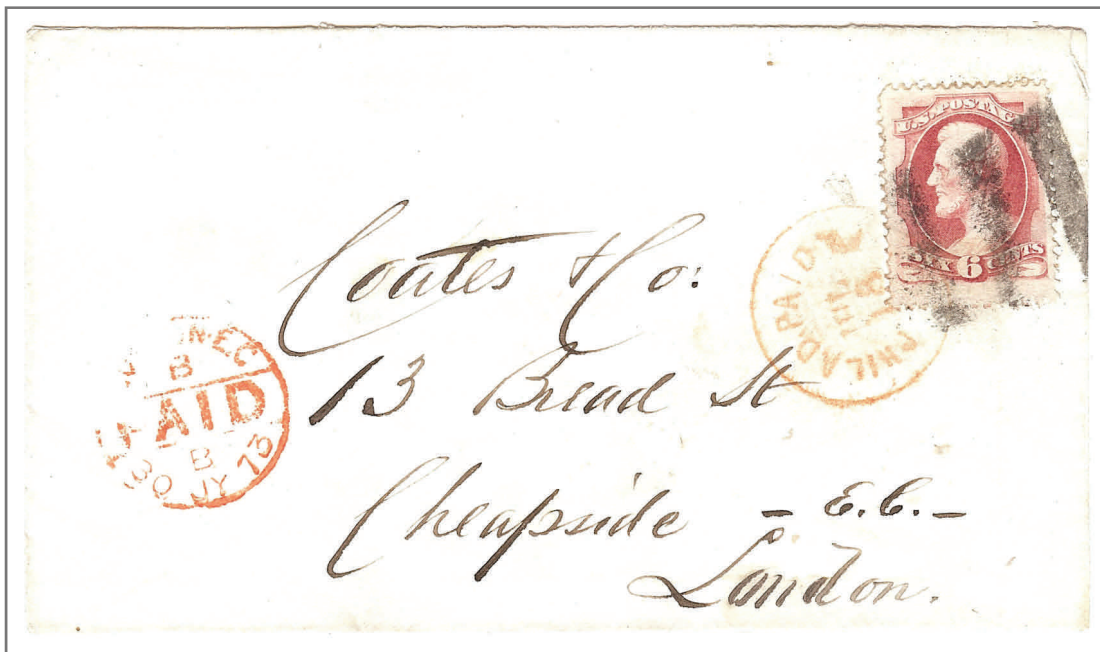 U.S. POSTAGE
SIX 6 CENTS
PHILADA PAID
JUL
18
Coates & Co:
13 Bread St
Cheapside - E.C. -
London.
B
PAID
B
30 JY 73